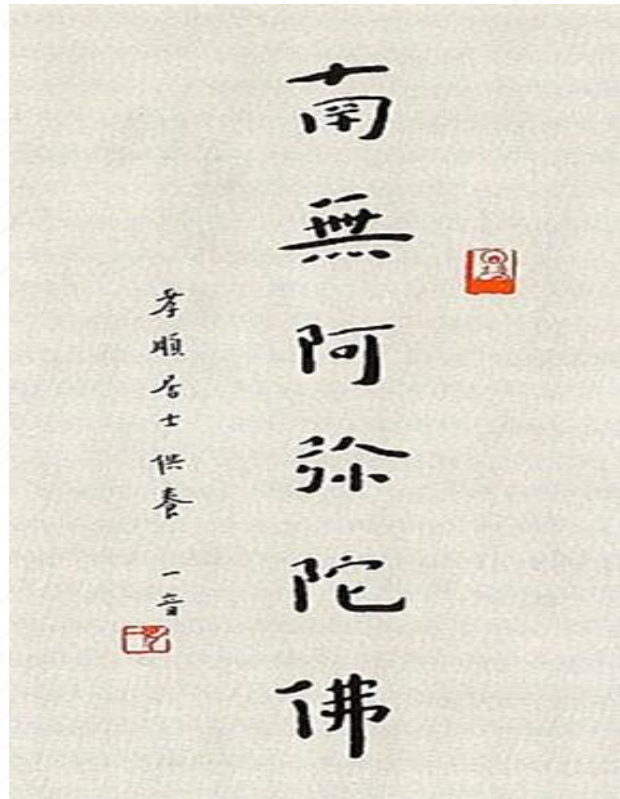 南無阿弥陀佛
孝順居士供養 一音